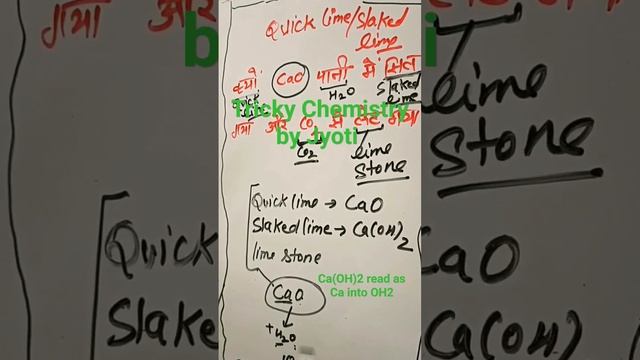 Quick lime/Slaked
lime
क्यों CaO पानी में सिल
H2O Slaked
lime
Tricky Chemistry
by Jyoti
गया और CO2 से लेट गया
CO2 lime
stone
Quick lime → CaO
Slaked lime → Ca(OH)2
lime stone
Ca(OH)2 read as
Ca into OH2
CaO
+H2O
गया
by
lime
stone
Quick
Slake
CaO
Ca(OH)